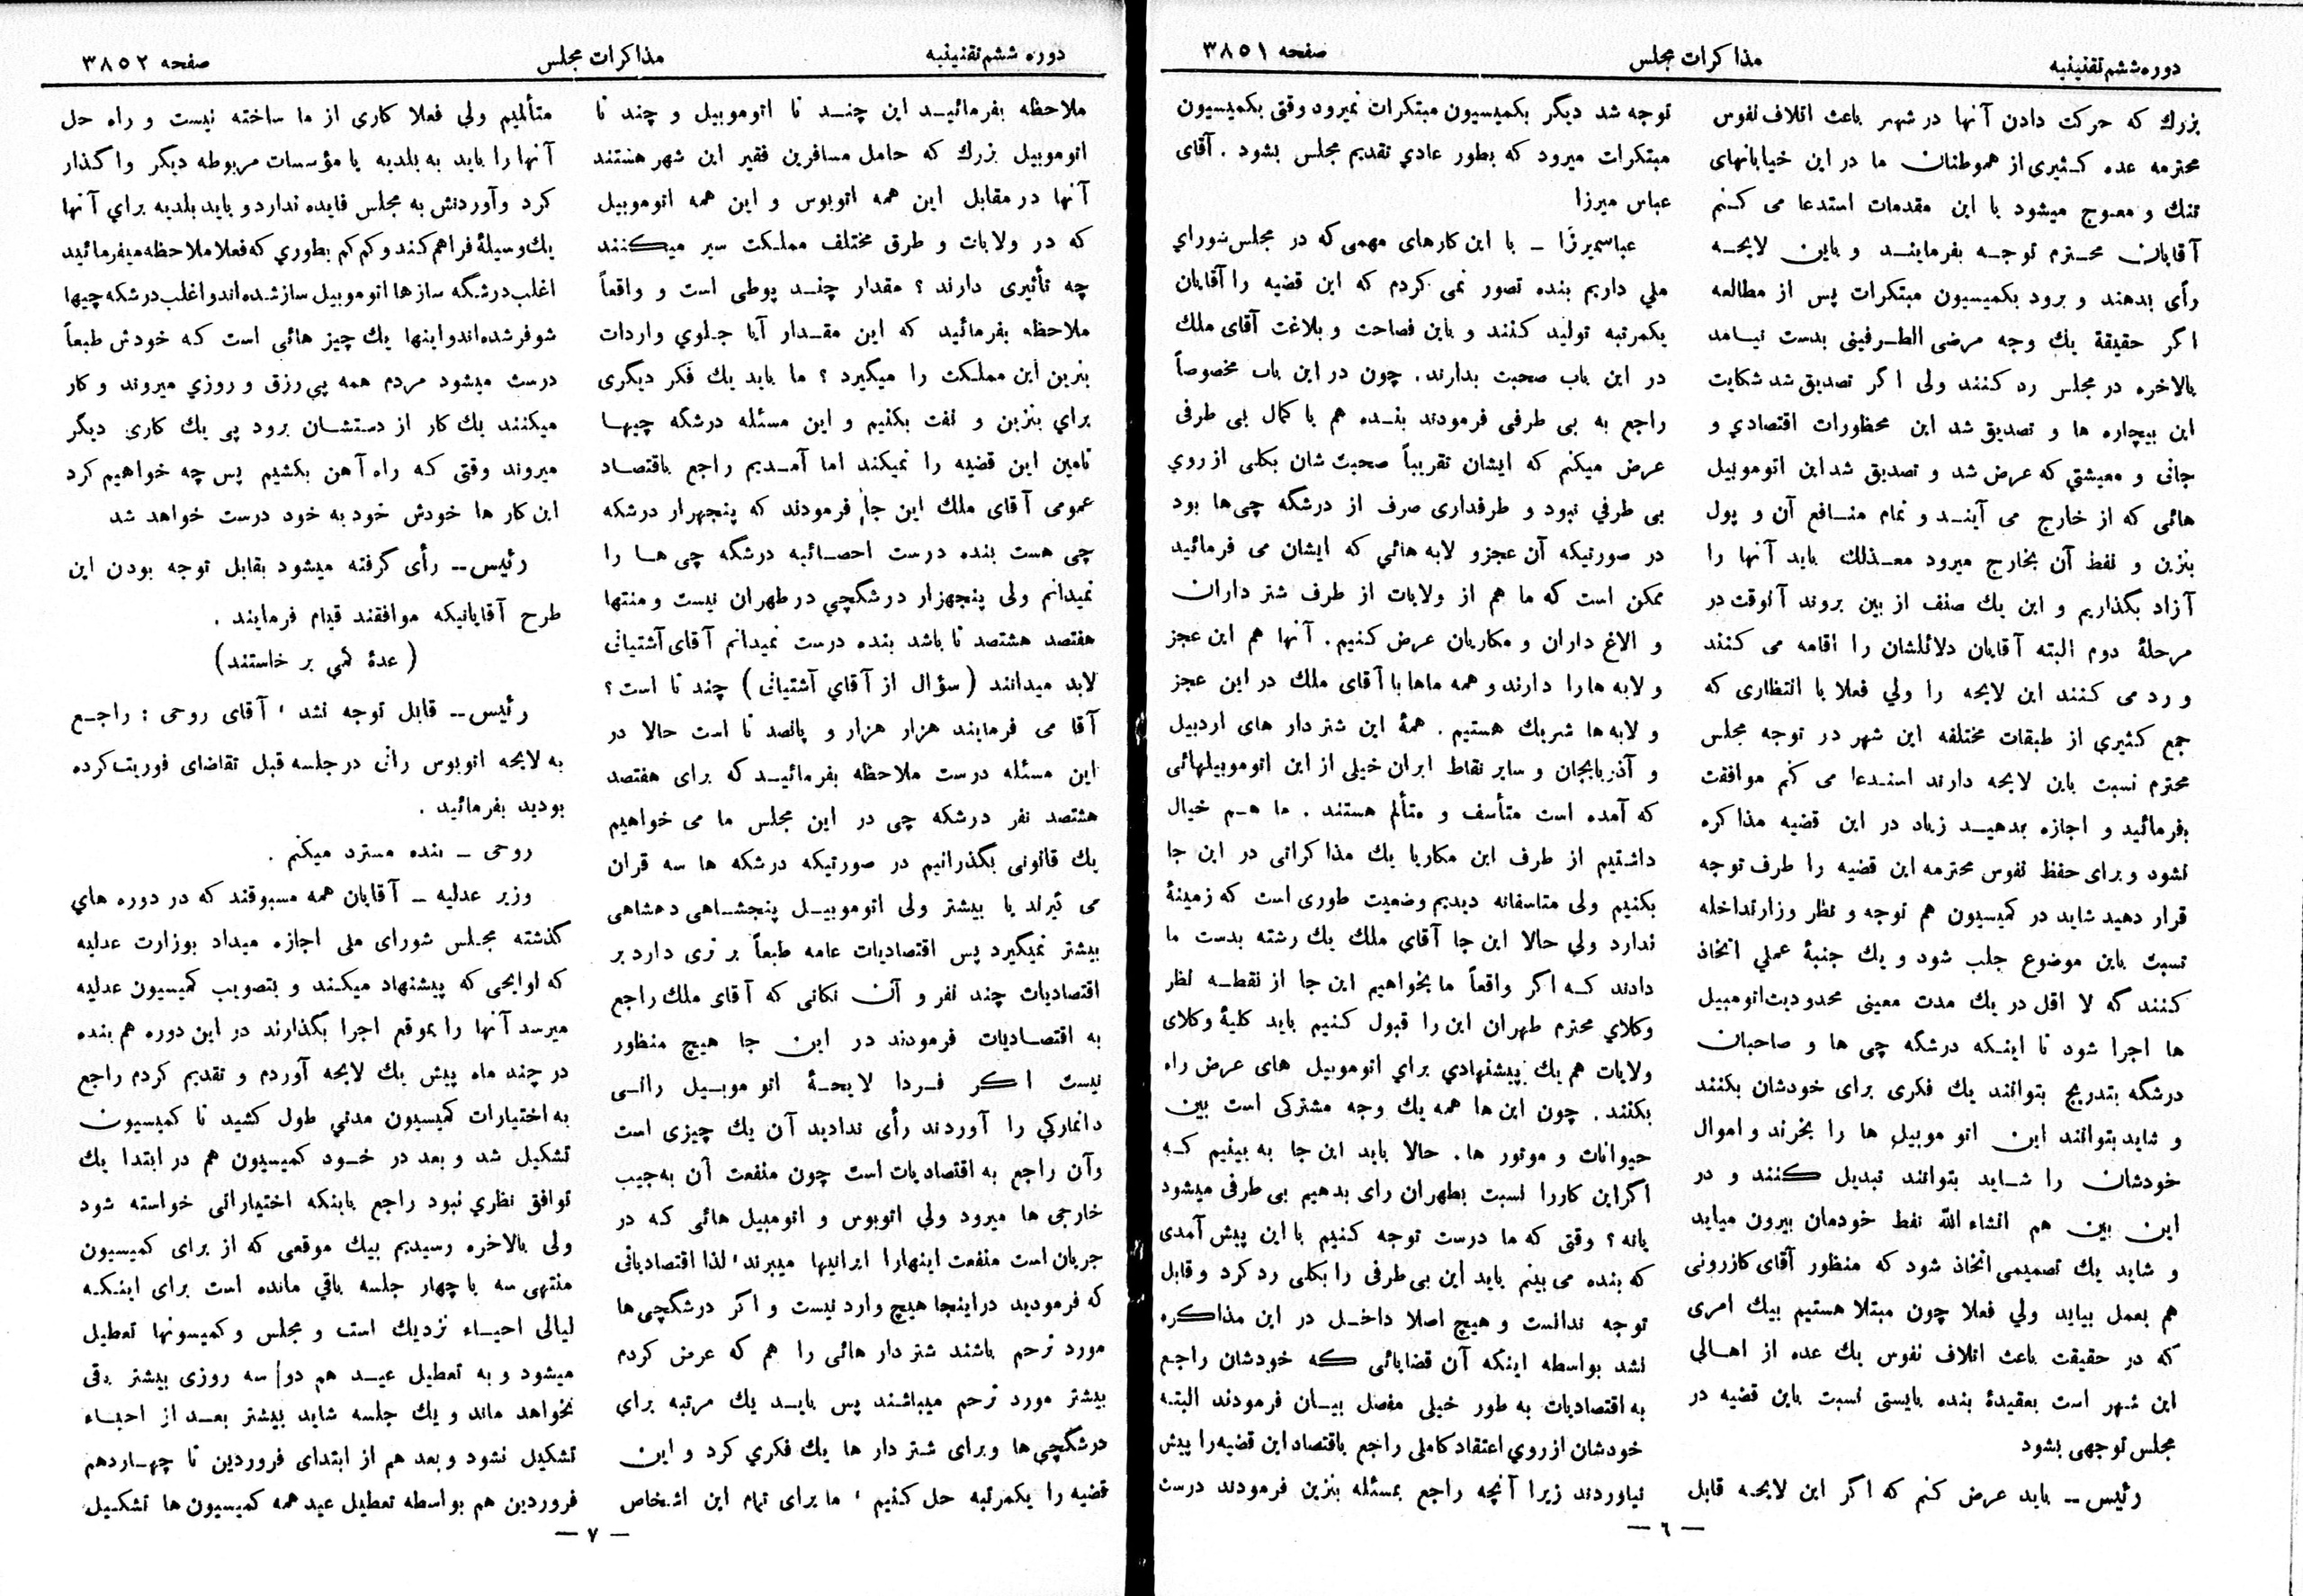 دوره ششم تقنینیه
مذاکرات مجلس
صفحه ۳۸۵۱
بزرك که حرکت دادن آنها در شهر باعث اتلاف نفوس
محترمه عده کثیری از هموطنان ما در این خیابانهای
تنك و معوج میشود با این مقدمات استدعا می کنم
آقایان محترم توجه بفرمایند و باین لایحه
رأی بدهند و برود بکمیسیون مبتکرات پس از مطالعه
اگر حقیقة یك وجه مرضی الطرفینی بدست نیامد
بالاخره در مجلس رد کنند ولی اگر تصدیق شد شکایت
این بیچاره ها و تصدیق شد این محظورات اقتصادي و
جانی و معیشتي که عرض شد و تصدیق شد این اتوموبیل
هائی که از خارج می آیند و تمام منافع آن و پول
بنزین و نفط آن بخارج میرود معذلك باید آنها را
آزاد بگذاریم و این یك صنف از بین بروند آنوقت در
مرحلهٔ دوم البته آقایان دلائلشان را اقامه می کنند
و رد می کنند این لایحه را ولي فعلا با انتظاری که
جمع کثیري از طبقات مختلفه این شهر در توجه مجلس
محترم نسبت باین لایحه دارند استدعا می کنم موافقت
بفرمائید و اجازه بدهید زیاد در این قضیه مذاکره
نشود و برای حفظ نفوس محترمه این قضیه را طرف توجه
قرار دهید شاید در کمیسیون هم توجه و نظر وزارتداخله
نسبت باین موضوع جلب شود و یك جنبهٔ عملي اتخاذ
کنند که لا اقل در یك مدت معینی محدودیت اتومبیل
ها اجرا شود تا اینکه درشگه چی ها و صاحبان
درشگه بتدریج بتوانند یك فکری برای خودشان بکنند
و شاید بتوانند این اتوموبیل ها را بخرند و اموال
خودشان را شاید بتوانند تبدیل کنند و در
این بین هم انشاء الله نفط خودمان بیرون میاید
و شاید یك تصمیمی اتخاذ شود که منظور آقای کازرونی
هم بعمل بیاید ولي فعلا چون مبتلا هستیم بیك امری
که در حقیقت باعث اتلاف نفوس یك عده از اهالي
این شهر است بعقیدهٔ بنده بایستی نسبت باین قضیه در
مجلس توجهی بشود
رئیس – باید عرض کنم که اگر این لایحه قابل
توجه شد دیگر بکمیسیون مبتکرات نمیرود وقتی بکمیسیون
مبتکرات میرود که بطور عادي تقدیم مجلس بشود . آقای
عباس میرزا
عباسمیرزا – با این کارهای مهمی که در مجلس شوراي
ملي داریم بنده تصور نمی کردم که این قضیه را آقایان
یکمرتبه تولید کنند و باین فصاحت و بلاغت آقای ملك
در این باب صحبت بدارند. چون در این باب مخصوصاً
راجع به بی طرفی فرمودند بنده هم با کمال بی طرفی
عرض میکنم که ایشان تقریباً صحبت شان بکلی از روي
بی طرفي نبود و طرفداری صرف از درشگه چی ها بود
در صورتیکه آن عجز و لابه هائي که ایشان می فرمائید
ممکن است که ما هم از ولایات از طرف شتر داران
و الاغ داران و مکاریان عرض کنیم. آنها هم این عجز
و لابه ها را دارند و همه ماها با آقای ملك در این عجز
و لابه ها شریك هستیم . همهٔ این شتر دار های اردبیل
و آذربایجان و سایر نقاط ایران خیلی از این اتوموبیلهائی
که آمده است متأسف و متألم هستند . ما هم خیال
داشتیم از طرف این مکاریا یك مذاکراتی در این جا
بکنیم ولی متاسفانه دیدیم وضعیت طوری است که زمینهٔ
ندارد ولي حالا این جا آقای ملك یك رشته بدست ما
دادند که اگر واقعاً ما بخواهیم این جا از نقطه نظر
وکلاي محترم طهران این را قبول کنیم باید کلیهٔ وکلای
ولایات هم یك پیشنهادي براي اتوموبیل های عرض راه
بکنند. چون این ها همه یك وجه مشترکی است بین
حیوانات و موتور ها. حالا باید این جا به بینیم که
اگر این کار را نسبت بطهران رای بدهیم بی طرفی میشود
یانه ؟ وقتی که ما درست توجه کنیم با این پیش آمدی
که بنده می بینم باید این بی طرفی را بکلی رد کرد و قابل
توجه ندانست و هیچ اصلا داخل در این مذاکره
نشد بواسطه اینکه آن قضایائی که خودشان راجع
به اقتصادیات به طور خیلی مفصل بیان فرمودند البته
خودشان از روي اعتقاد کاملی راجع باقتصاد این قضیه را پیش
نیاوردند زیرا آنچه راجع بمسئله بنزین فرمودند درست
— ٦ —
دوره ششم تقنینیه
مذاکرات مجلس
صفحه ۳۸۵۲
ملاحظه بفرمائید این چند تا اتوموبیل و چند تا
اتوموبیل بزرك که حامل مسافرین فقیر این شهر هستند
آنها در مقابل این همه اتوبوس و این همه اتوموبیل
که در ولایات و طرق مختلف مملکت سیر میکنند
چه تأثیری دارند ؟ مقدار چند پوطی است و واقعاً
ملاحظه بفرمائید که این مقدار آیا جلوي واردات
بنزین این مملکت را میگیرد ؟ ما باید یك فکر دیگری
براي بنزین و نفت بکنیم و این مسئله درشگه چیها
تامین این قضیه را نمیکند اما آمدیم راجع باقتصاد
عمومی آقای ملك این جا فرمودند که پنجهزار درشکه
چی هست بنده درست احصائیه درشگه چی ها را
نمیدانم ولی پنجهزار درشگچي در طهران نیست و منتها
هفتصد هشتصد تا باشد بنده درست نمیدانم آقای آشتیانی
لابد میدانند (سؤال از آقاي آشتیانی) چند تا است ؟
آقا می فرمایند هزار هزار و پانصد تا است حالا در
این مسئله درست ملاحظه بفرمائید که برای هفتصد
هشتصد نفر درشکه چی در این مجلس ما می خواهیم
یك قانونی بگذرانیم در صورتیکه درشکه ها سه قران
می گیرند یا بیشتر ولی اتوموبیل پنجشاهی دهشاهی
بیشتر نمیگیرد پس اقتصادیات عامه طبعاً برتری دارد بر
اقتصادیات چند نفر و آن نکاتی که آقای ملك راجع
به اقتصادیات فرمودند در این جا هیچ منظور
نیست اگر فردا لایحهٔ اتوموبیل رانی
دانمارکي را آوردند رأی ندادید آن یك چیزی است
وآن راجع به اقتصادیات است چون منفعت آن به جیب
خارجی ها میرود ولي اتوبوس و اتومبیل هائی که در
جریان است منفعت اینهارا ایرانیها میبرند، لذا اقتصادیاتی
که فرمودید در اینجا هیچ وارد نیست و اگر درشگچی ها
مورد ترحم باشند شتر دار هائی را هم که عرض کردم
بیشتر مورد ترحم میباشند پس باید یك مرتبه براي
درشگچی ها و برای شتر دار ها یك فکري کرد و این
قضیه را یکمرتبه حل کنیم ، ما برای تمام این اشخاص
متألمیم ولي فعلا کاری از ما ساخته نیست و راه حل
آنها را باید به بلدیه یا مؤسسات مربوطه دیگر واگذار
کرد و آوردنش به مجلس فایده ندارد و باید بلدیه براي آنها
یك وسیلهٔ فراهم کند و کم کم بطوري که فعلا ملاحظه میفرمائید
اغلب درشگه سازها اتوموبیل ساز شده اند و اغلب درشکه چیها
شوفر شده اند و اینها یك چیز هائی است که خودش طبعاً
درست میشود مردم همه پي رزق و روزي میروند و کار
میکنند یك کار از دستشان برود پی یك کاری دیگر
میروند وقتی که راه آهن بکشیم پس چه خواهیم کرد
این کار ها خودش خود به خود درست خواهد شد
رئیس – رأی گرفته میشود بقابل توجه بودن این
طرح آقایانیکه موافقند قیام فرمایند .
(عدهٔ کمي بر خاستند)
رئیس – قابل توجه نشد ، آقای روحی : راجع
به لایحه اتوبوس رانی در جلسه قبل تقاضای فوریت کرده
بودید بفرمائید .
روحی – بنده مسترد میکنم .
وزیر عدلیه – آقایان همه مسبوقند که در دوره های
گذشته مجلس شورای ملی اجازه میداد بوزارت عدلیه
که لوایحی که پیشنهاد میکند و بتصویب کمیسیون عدلیه
میرسد آنها را بموقع اجرا بگذارند در این دوره هم بنده
در چند ماه پیش یك لایحه آوردم و تقدیم کردم راجع
به اختیارات کمیسیون مدتي طول کشید تا کمیسیون
تشکیل شد و بعد در خود کمیسیون هم در ابتدا یك
توافق نظري نبود راجع باینکه اختیاراتی خواسته شود
ولی بالاخره رسیدیم بیك موقعی که از برای کمیسیون
منتهی سه یا چهار جلسه باقي مانده است برای اینکه
لیالی احیاء نزدیك است و مجلس و کمیسیونها تعطیل
میشود و به تعطیل عید هم دو سه روزی بیشتر باقی
نخواهد ماند و یك جلسه شاید بیشتر بعد از احیاء
تشکیل نشود و بعد هم از ابتدای فروردین تا چهاردهم
فروردین هم بواسطه تعطیل عید همه کمیسیون ها تشکیل
— ۷ —